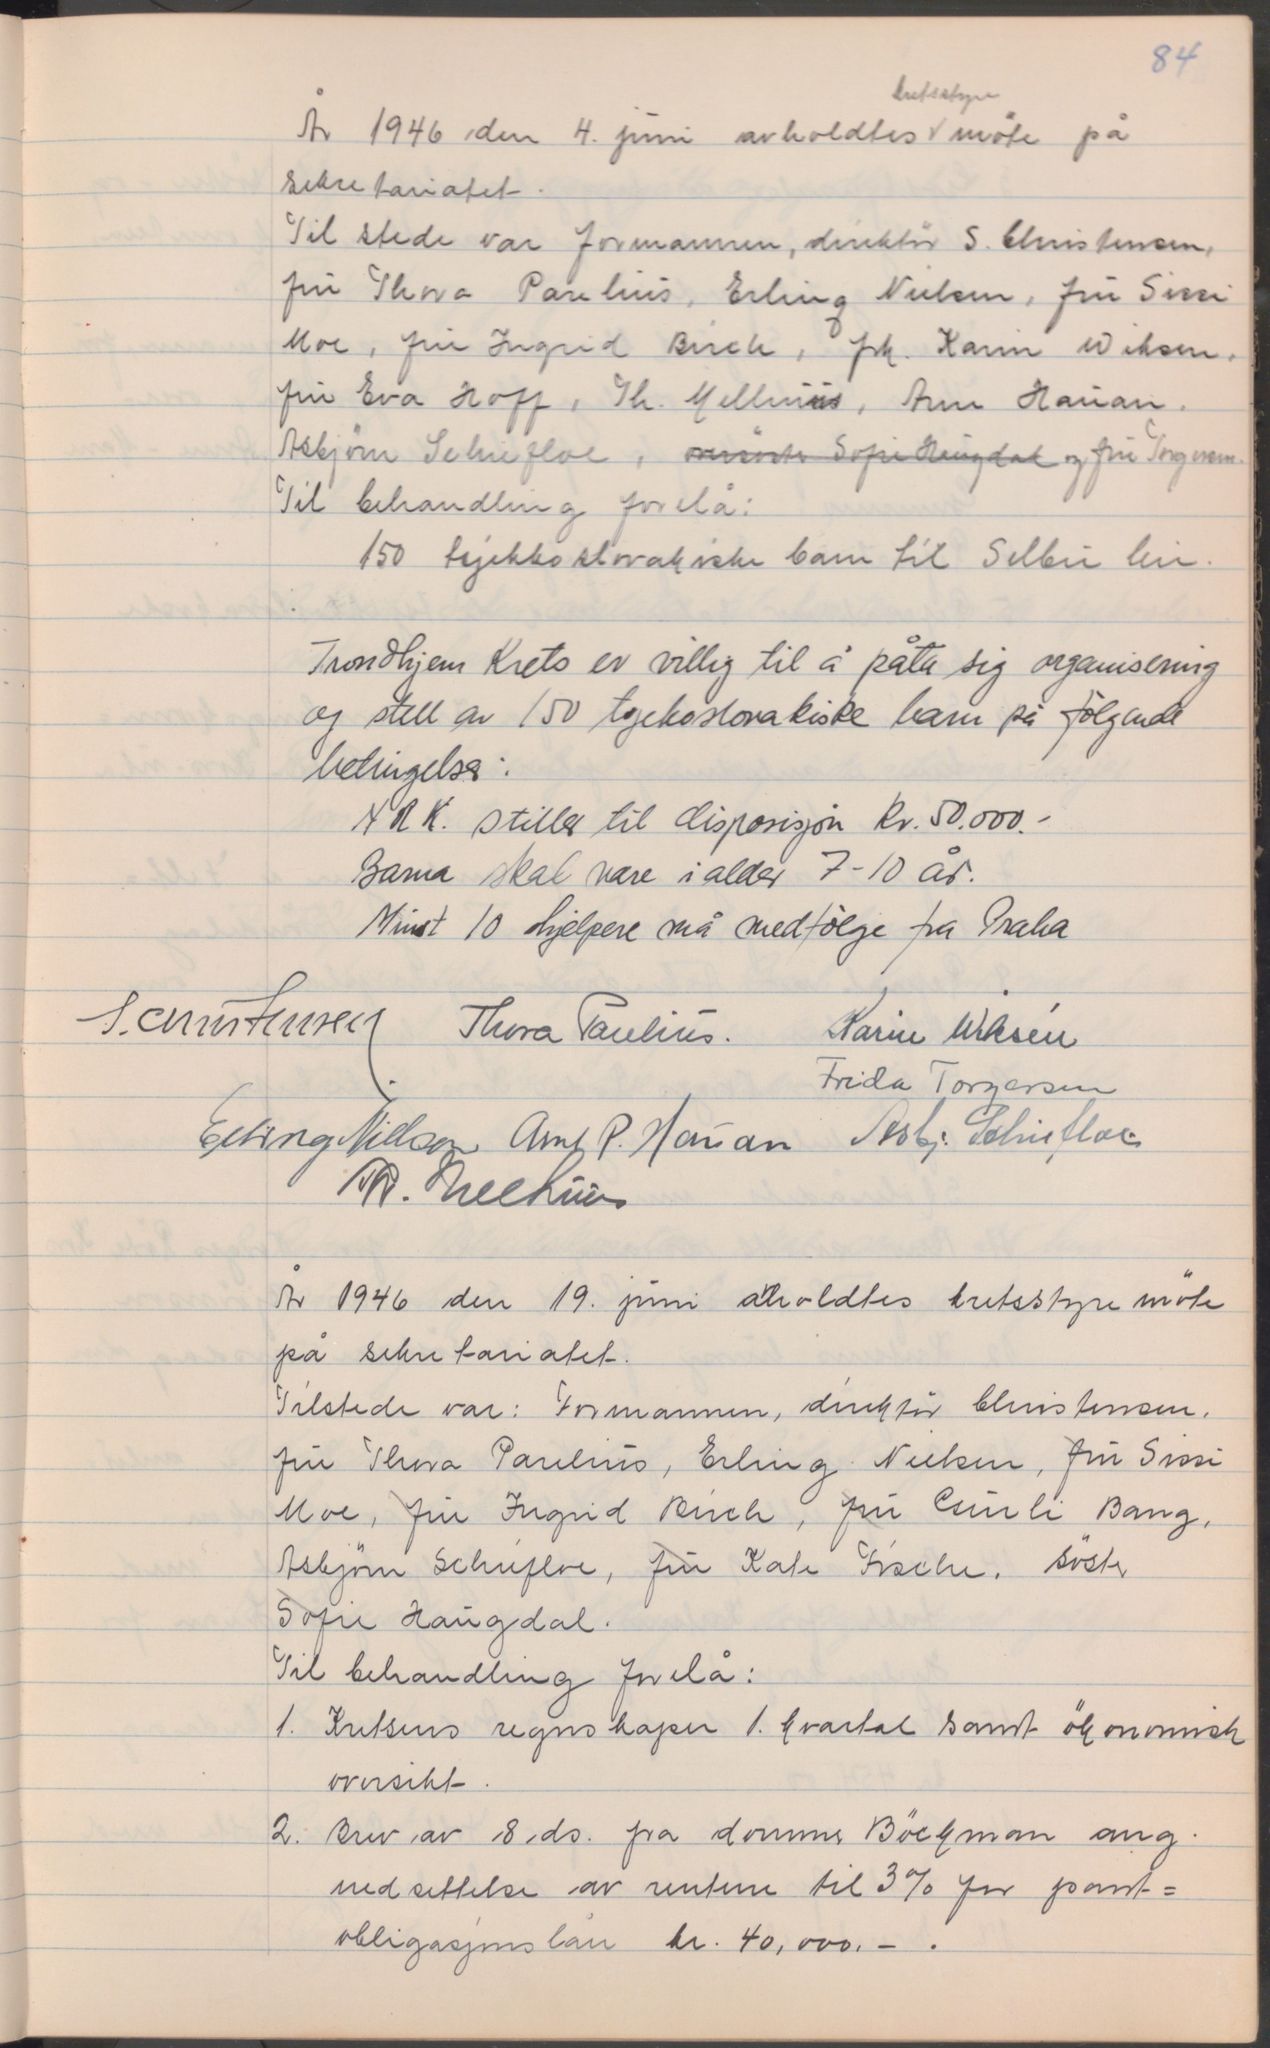 84
kretsstyre
År 1946 den 4. juni avholdtes √ möte på
sekretariatet.
Til stede var formannen, direktör S. Christensen,
fru Thora Parelius, Erling Nielsen, fru Sissi
Moe, fru Ingrid Birch, frk. Karin Wiksen,
fru Eva Hoff, Th. Mellhuus, Arne Hauan.
Asbjörn Schiefloe, Sofie Haugdal og fru Torgersen.
Til behandling forelå:
150 tsjekkoslovakiske barn til Selbu leir.
Trondhjem Krets er villig til å påta sig organisering
og stell av 150 tsjekoslovakiske barn på fölgende
betingelser:
N R K. stiller til disposisjon kr. 50.000.-
Barna skal være i alder 7-10 år.
Minst 10 hjelpere må medfölge fra Praha
S. Christensen Thora Parelius. Karin Wiksén
Frida Torgersen
Erling Nielsen Arne P. Hauan Asbj. Schiefloe.
Th. Mellhuus
År 1946 den 19. juni avholdtes kretsstyremöte
på sekretariatet.
Tilstede var: Formannen, direktör Christensen,
fru Thora Parelius, Erling Nielsen, fru Sissi
Moe, fru Ingrid Birch, fru Bang,
Asbjörn Schiefloe, fru Kate Fische, söster
Sofie Haugdal.
Til behandling forelå:
1. Kretsens regnskaper 1. kvartal samt ökonomisk
oversikt.
2. Brev av 8. ds. fra dommer Böckman ang.
nedsettelse av renten til 3% for pant=
obligasjonslån kr. 40,000.-.